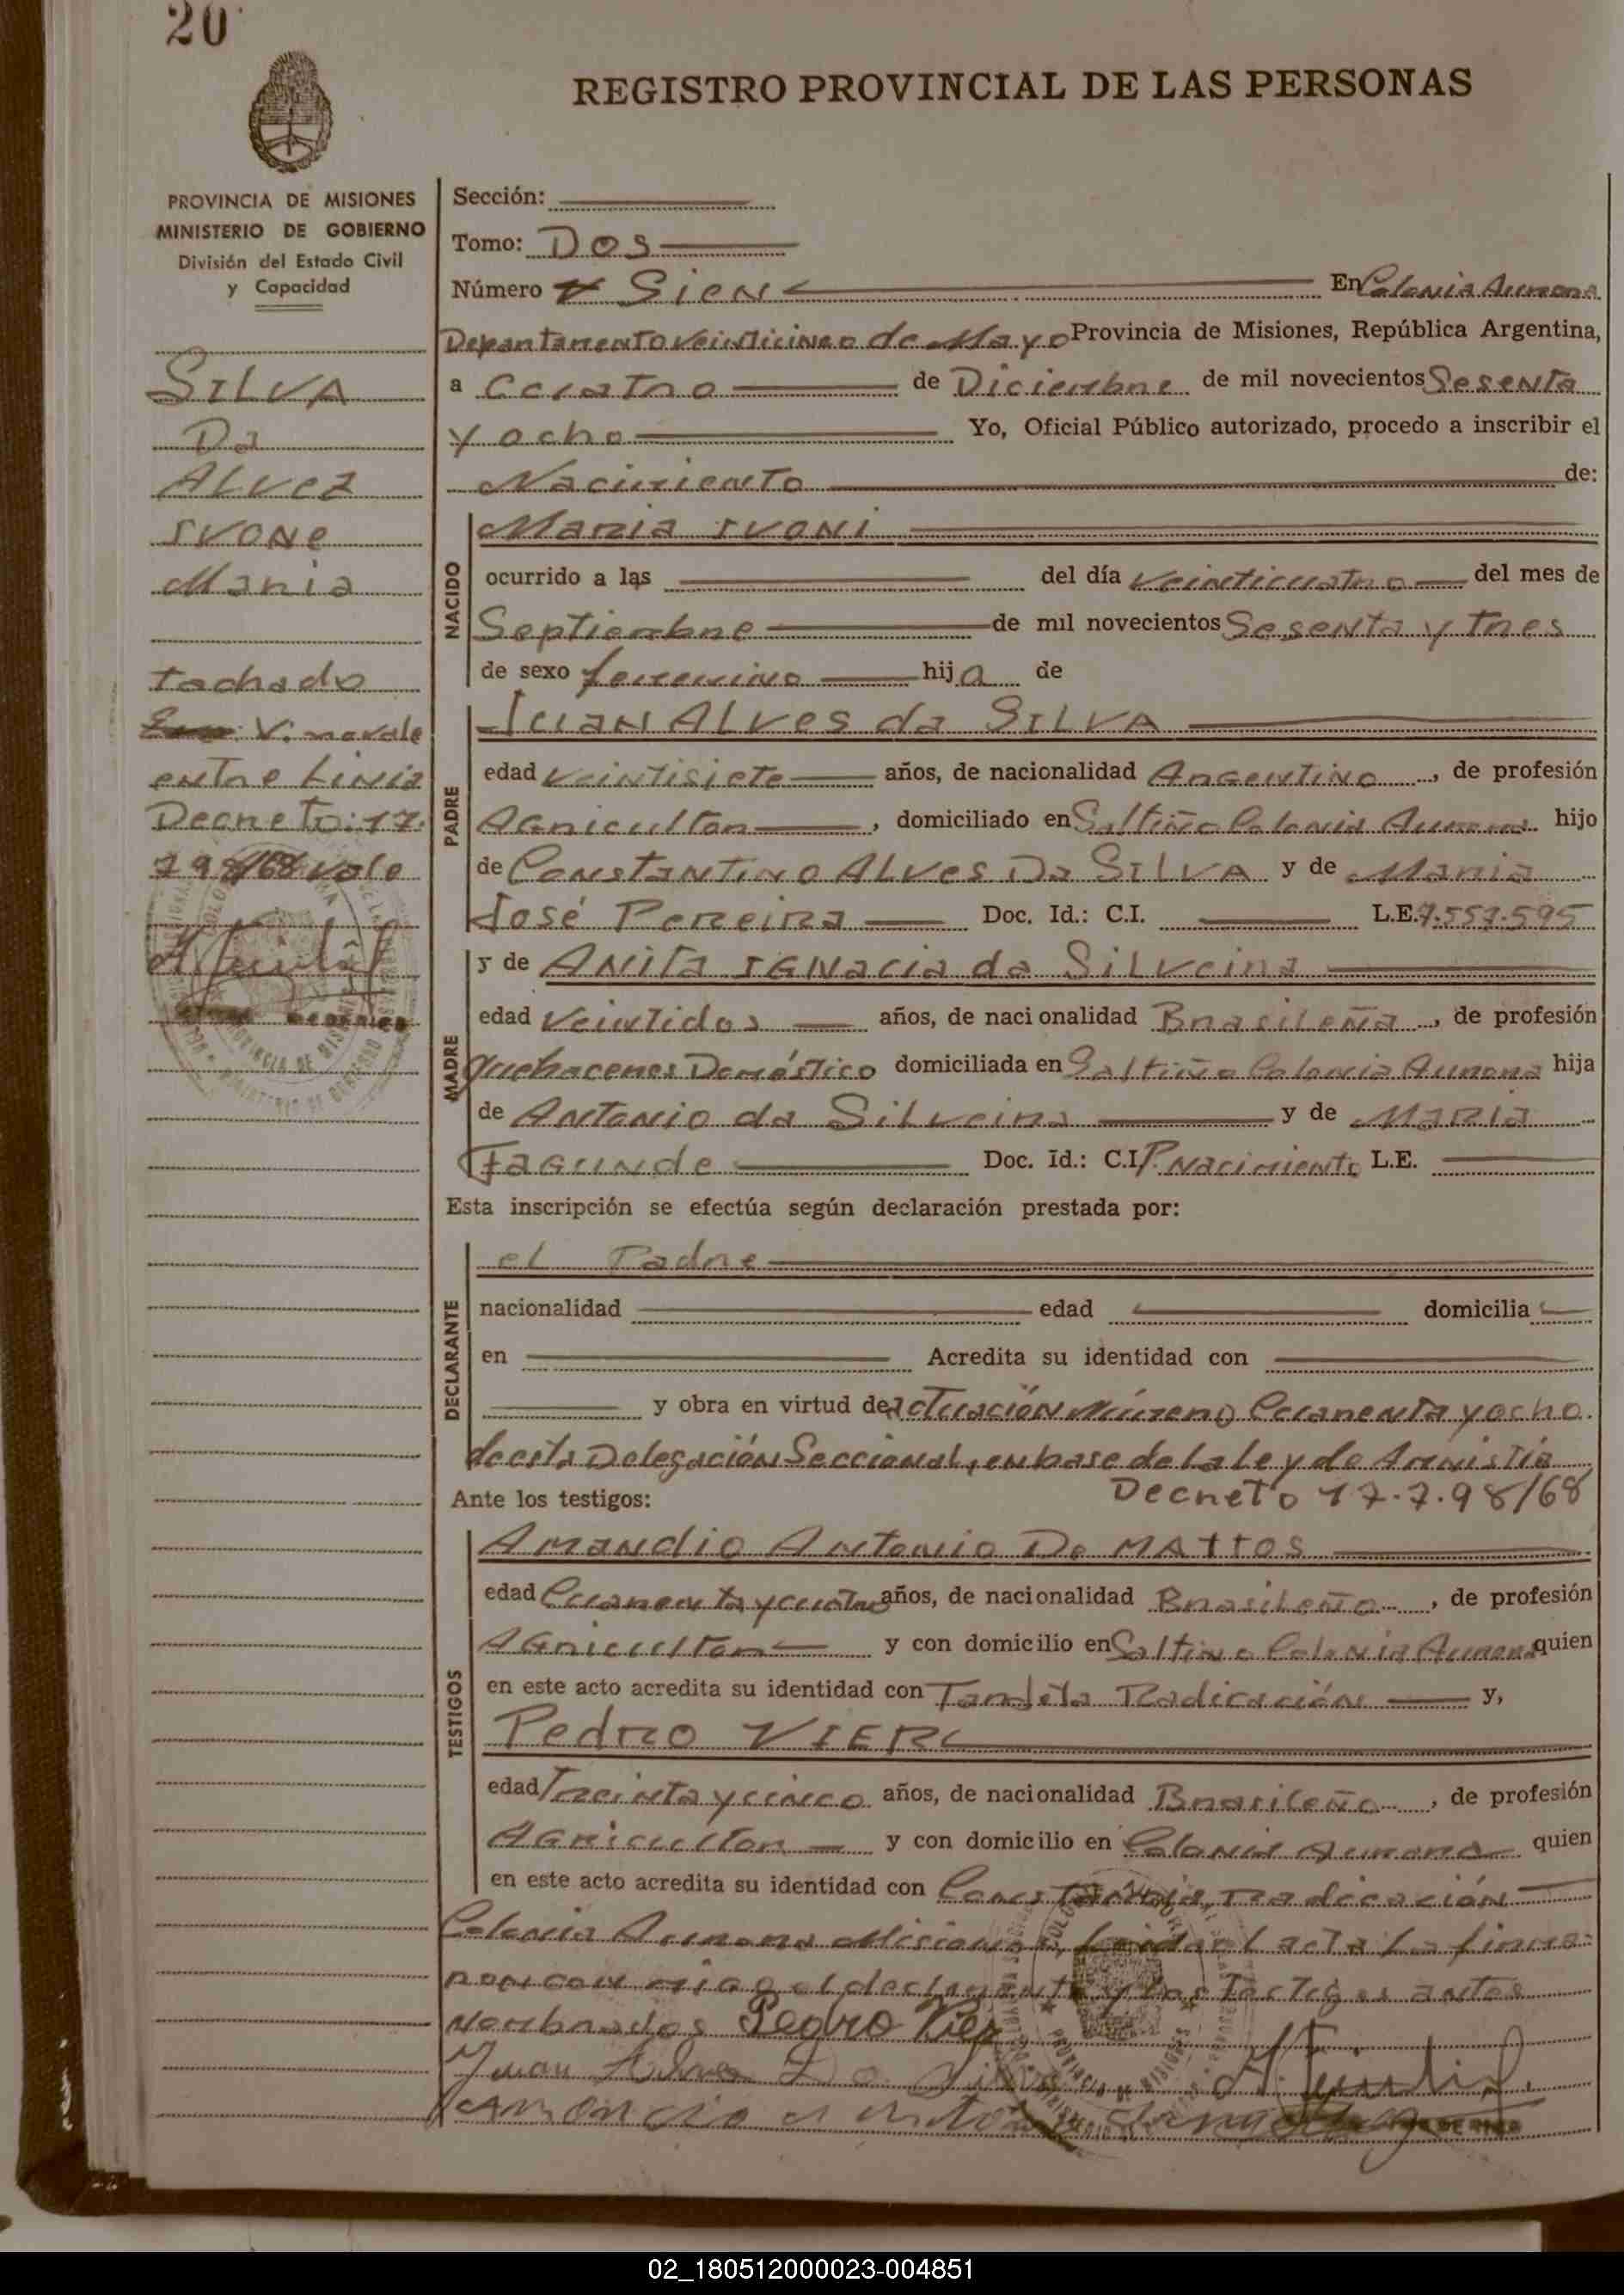 20
REGISTRO PROVINCIAL DE LAS PERSONAS
PROVINCIA DE MISIONES
MINISTERIO DE GOBIERNO
División del Estado Civil
y Capacidad
SILVA
Da
ALVez
IVONe
Maria
tachado
V. no vale
entre Linia
Decreto: 17.
798/68 vale
Sección:
Tomo: Dos
Número Sien En Colonia Aurora
Departamento Veinticinco de Mayo Provincia de Misiones, República Argentina,
a Cuatro de Diciembre de mil novecientos Sesenta
y ocho Yo, Oficial Público autorizado, procedo a inscribir el
Nacimiento de:
NACIDO
Maria IVONi
ocurrido a las del día Veinticuatro del mes de
Septiembre de mil novecientos Sesenta y tres
de sexo femenino hija de
PADRE
Juan ALVes da SILVA
edad Veintisiete años, de nacionalidad Argentino, de profesión
Agricultor, domiciliado en Saltiño Colonia Aurora hijo
de Constantino ALVes Da SILVA y de Maria
José Pereira Doc. Id.: C.I. L.E. 7.557.595
MADRE
y de Anita IGNacia da Silveira
edad Veintidos años, de nacionalidad Brasileña, de profesión
quehaceres Doméstico domiciliada en Saltiño Colonia Aurora hija
de Antonio da Silveira y de Maria
Fagunde Doc. Id.: C.I. P. Nacimiento L.E.
Esta inscripción se efectúa según declaración prestada por:
DECLARANTE
el Padre
nacionalidad edad domicilia
en Acredita su identidad con
y obra en virtud de actuación Número Cuarenta y ocho
de esta Delegación Seccional, en base de la Ley de Amistía
Decreto 17.7.98/68
Ante los testigos:
TESTIGOS
Amandio Antonio De MATTOS
edad Cuarenta y cuatro años, de nacionalidad Brasileño, de profesión
Agricultor y con domicilio en Saltiño Colonia Aurora quien
en este acto acredita su identidad con Tarjeta Radicación y,
Pedro VIER
edad Treinta y cinco años, de nacionalidad Brasileño, de profesión
Agricultor y con domicilio en Colonia Aurora quien
en este acto acredita su identidad con Constancia Radicación
Colonia Aurora Misiones, Leida el acta La firma-
ron con migo el declarante y los Testigos antes
Nombrados Pedro Vier
Juan Alves Da Silva
02_180512000023-004851